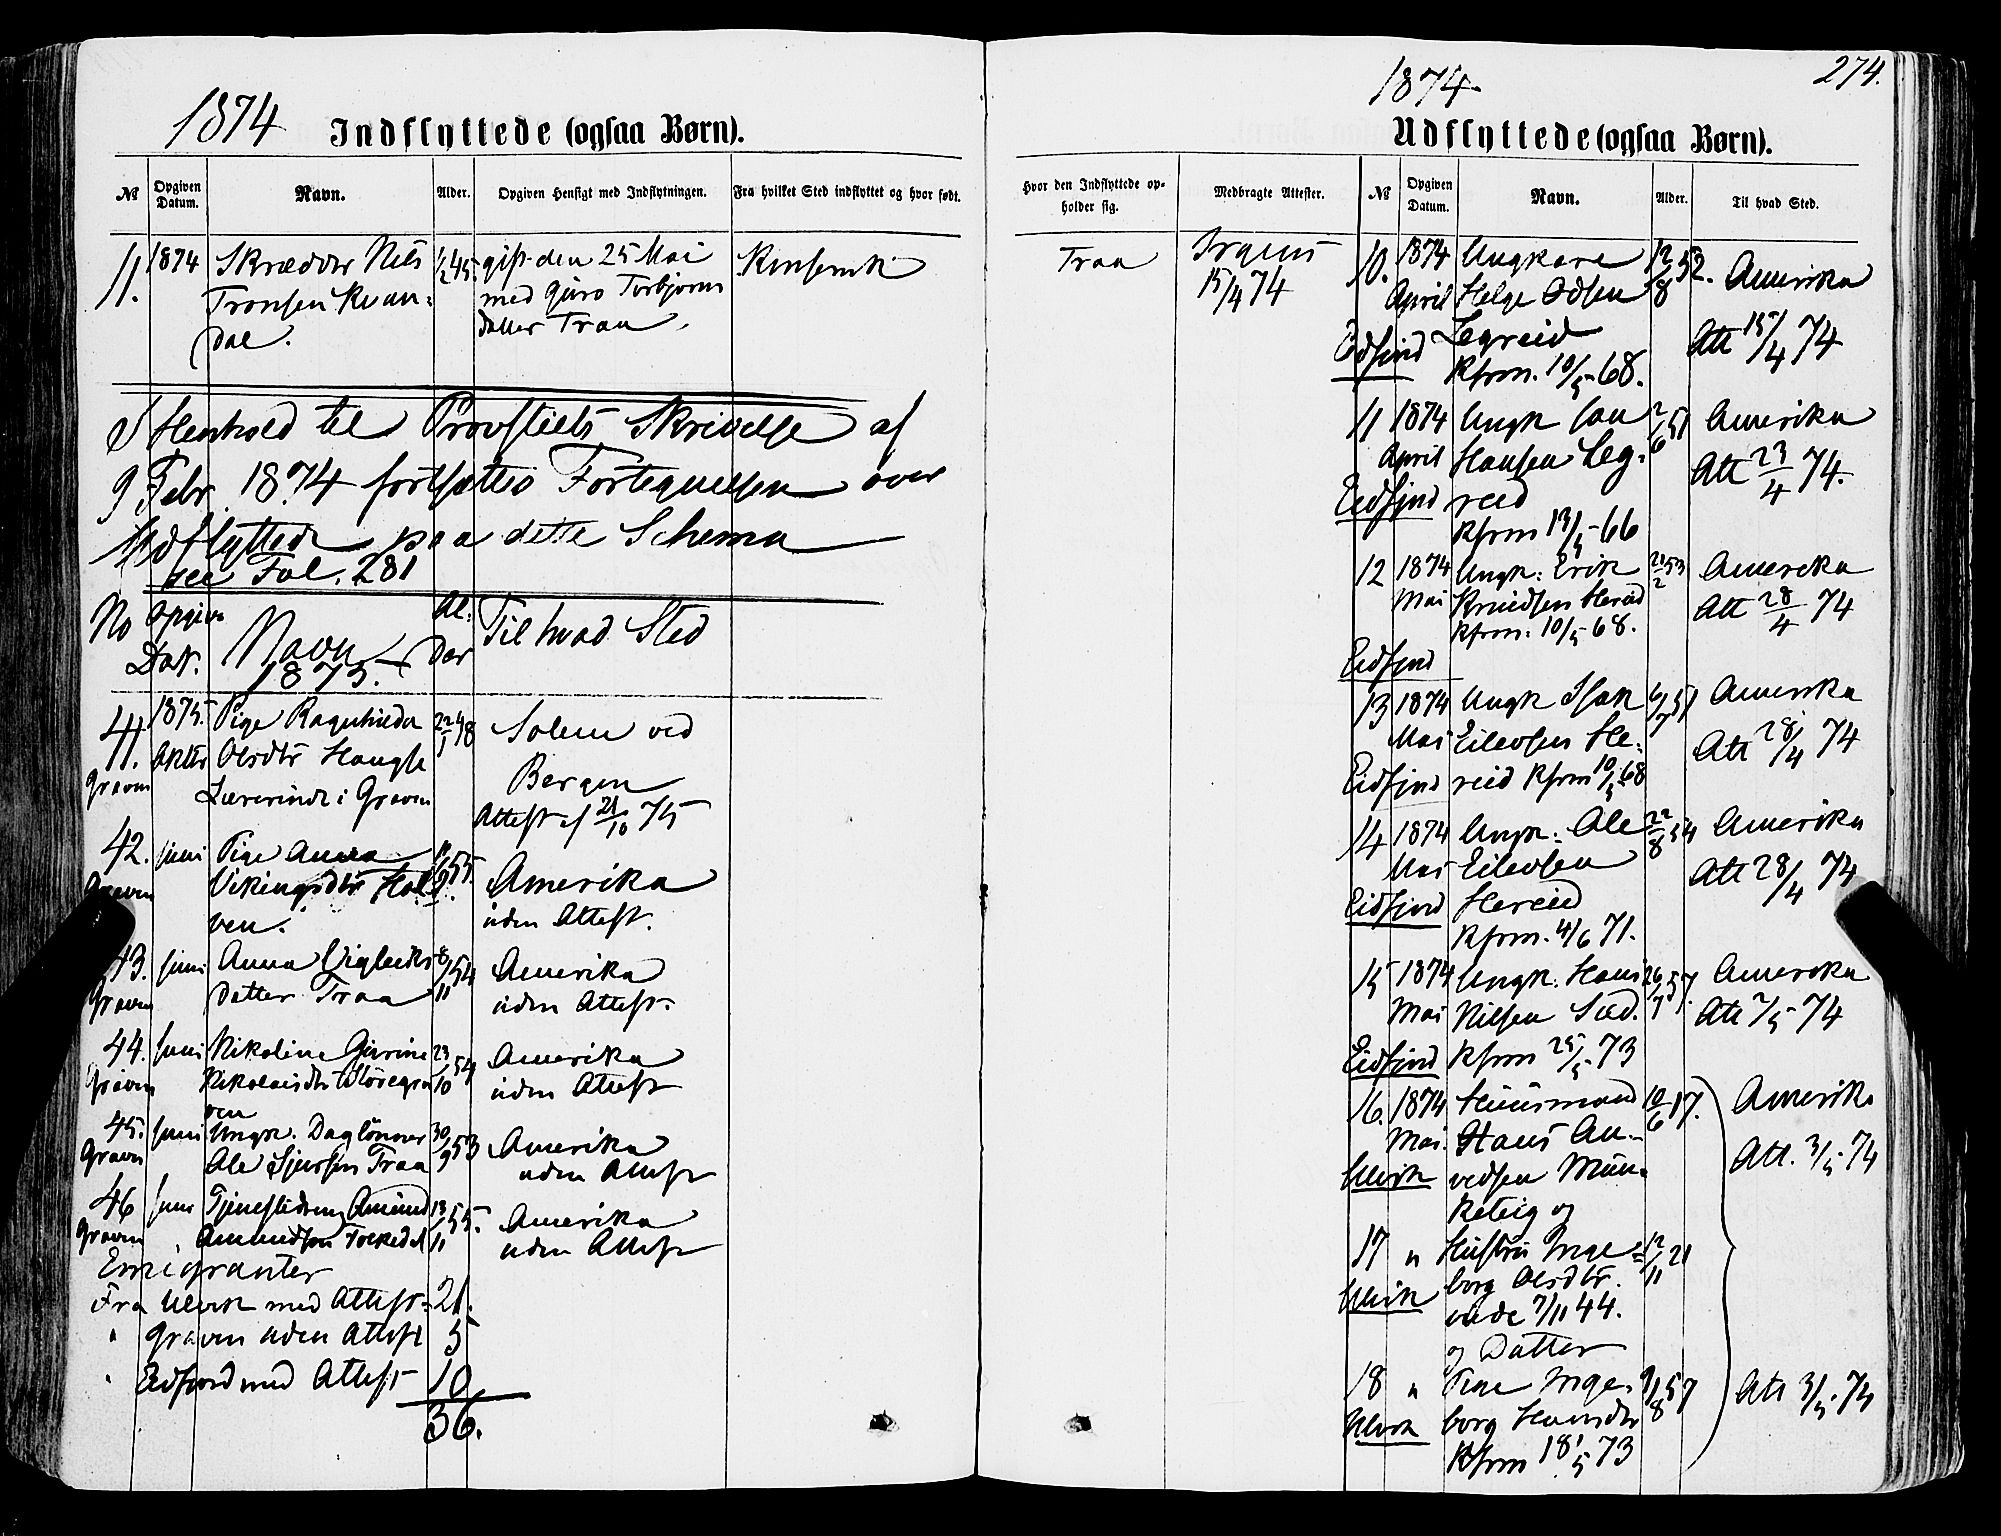 1874 Indflyttede (ogsaa Børn).
№ Opgiven Datum. Navn. Alder. Opgiven Hensigt med Indflytningen. Fra hvilket Sted indflyttet og hvor født.
11. 1874 Skrædder Nils 45. gift den 25 Mai Kinservik
Tronsen Kvan- med Guro Torbjørns
dal. datter Traa.
I Henhold til Provstiets Skrivelse af
9 Febr. 1874 fortsættes Fortegnelsen over
Udflyttede paa dette Schema
see Fol. 281
No Opgiv. Dat. Navn Al- der Til hvad Sted
1875.
41. 1875. Pige Ragnhilda 22/1 48 Solem ved
Oktbr Olsdtr Haugse Bergen
Graven Lærerinde i Graven Attest af 21/10 75
42. Juni Pige Anna 55. Amerika
Graven Vikingsdtr Hol- uden Attest.
ven.
43. Juni Anna Vigleiks 8/11 54 Amerika
Graven datter Traa uden Attest.
44. Juni Nikoline Gurine 23/10 54 Amerika
Graven Nikolaisdtr uden Attest
ven
45. Juni Ungk. Daglönner 30/9 53 Amerika
Graven Ole Sjursen Traa uden Attest
46 Juni Tjenestedreng Amund 13/11 55. Amerika
Graven Amundsen Folkedal uden Attest
Emigranter
Fra Ulvik med Attest- 21.
" Graven uden Attest 5
" Eidfjord med Attest 10
36.
274.
1874.
Udflyttede (ogsaa Børn).
Hvor den Indflyttede opholder sig. Medbragte Attester. № Opgiven Datum. Navn. Alder. Til hvad Sted.
Traa Irgens
15/4 74
10. 1874 Ungkare 12/8 52. Amerika
April Helge Odsen
Eidfjord Legreid Att 15/4 74
Kfrm. 10/5 68.
11 1874 Ungk 2/6 51 Amerika
April Hansen Leg- Att 23/4 74.
Eidfjord reid
Kfrm 13/5 66
12 1874 Ungk: Erik 21/2 53 Amerika
Mai Knudsen Hereid Att 28/4 74
Kfrm: 10/5 68.
Eidfjord
13 1874 Ungk Isak 6/7 51 Amerika
Mai Eilevsen He- Att 28/4 74
Eidfjord reid Kfrm 10/5 68
14 1874 Ungk: Ole 22/8 54 Amerika
Mai Eilevsen Att 28/4 74
Eidfjord Hereid
Kfrm. 4/6 71.
15 1874 Ungk: Hans 26/7 57. Amerika
Mai Nilsen Sæd. Att 7/5 74
Eidfjord Kfrm 25/5 73
16. 1874 Huusmand 10/6 17. Amerika
Mai. Hans An-
Ulvik vedsen Mun- Att. 3/5 74
keteig og
17 " Hustru Inge- 12/11 21
Ulvik borg Olsdtr.
viede 7/11 44.
og Datter
18 " Pige Inge- 9/8 57 Att 3/5 74
Ulvik borg Hansdtr
Kfrm 18/5 73